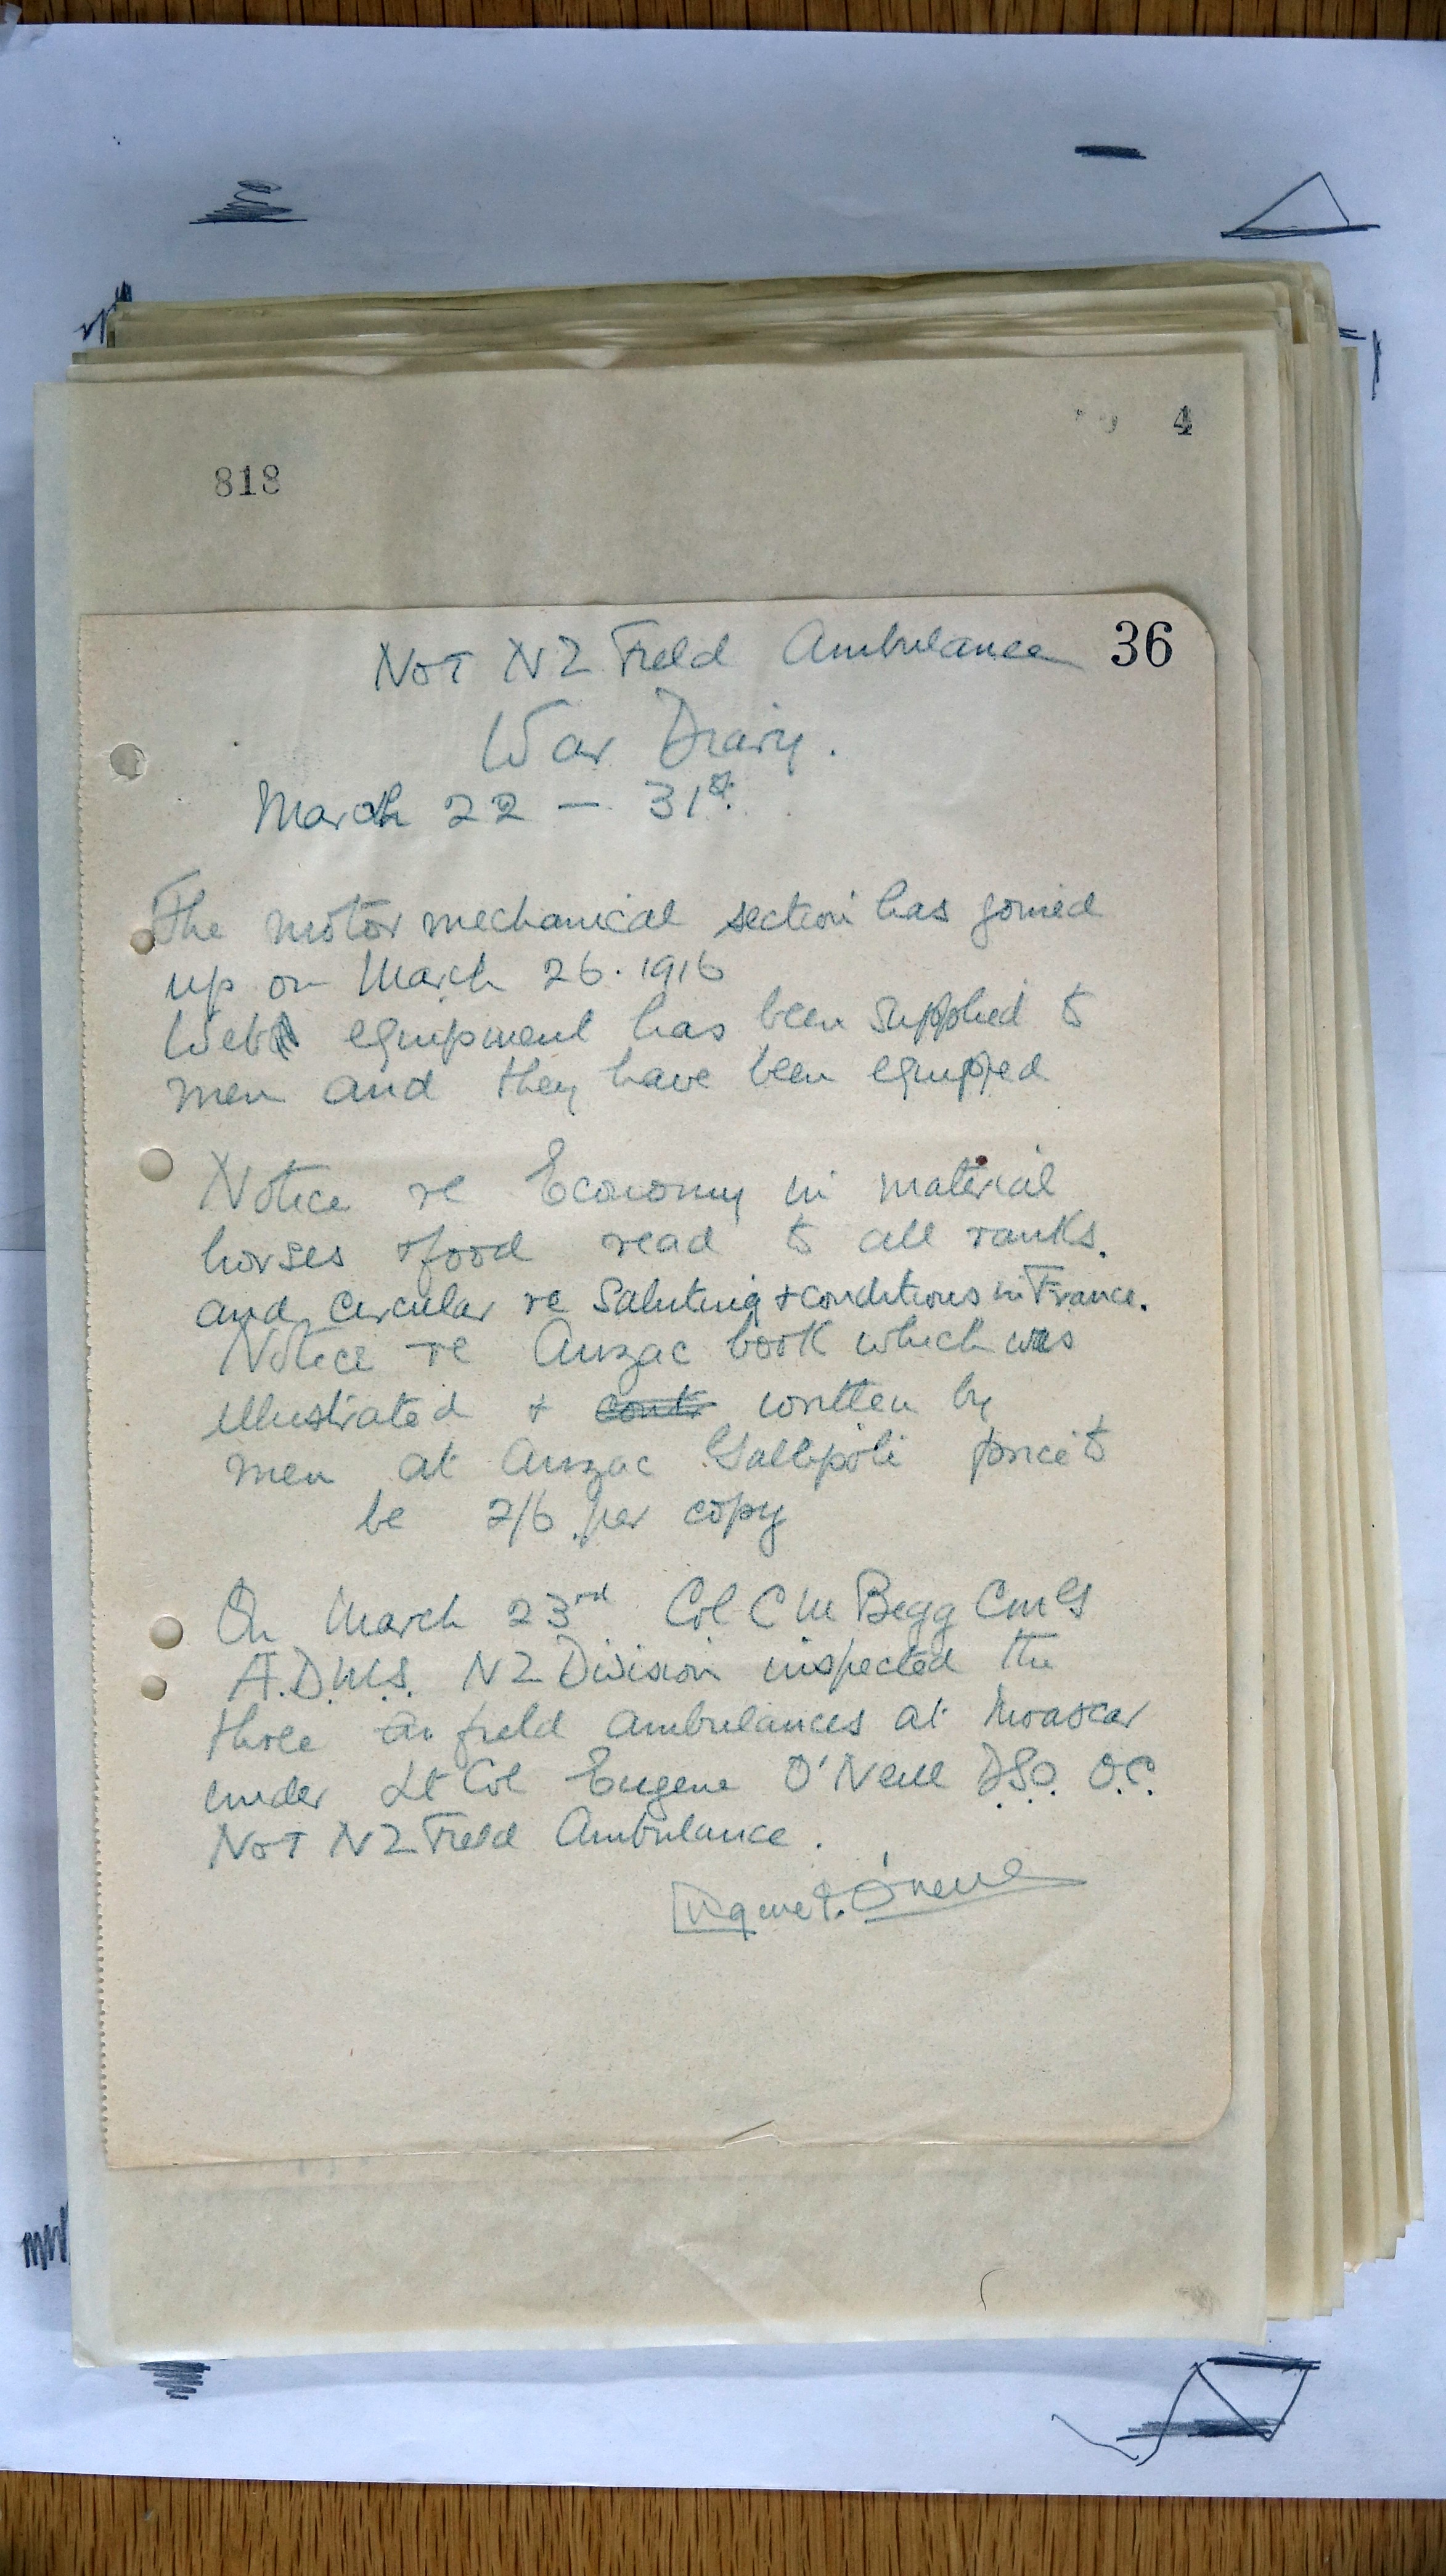 4
818
36
NoT NZ Field Ambulance
War Diary.
March 22 — 31st.
The motor mechanical section has joined
up on March 26. 1916
Web equipment has been supplied to
men and they have been equipped
Notice re Economy in material
horses & food read to all ranks.
and circular re Saluting & conditions in France.
Notice re Anzac book which was
illustrated & cont written by
men at Anzac Gallipoli price to
be 2/6 per copy
On March 23rd Col C M Begg CMG
A.D.M.S. NZ Division inspected the
three field ambulances at Moascar
under Lt Col Eugene O'Neill DSO. O.C.
NoT NZ Field Ambulance.
Eugene J. O'Neill